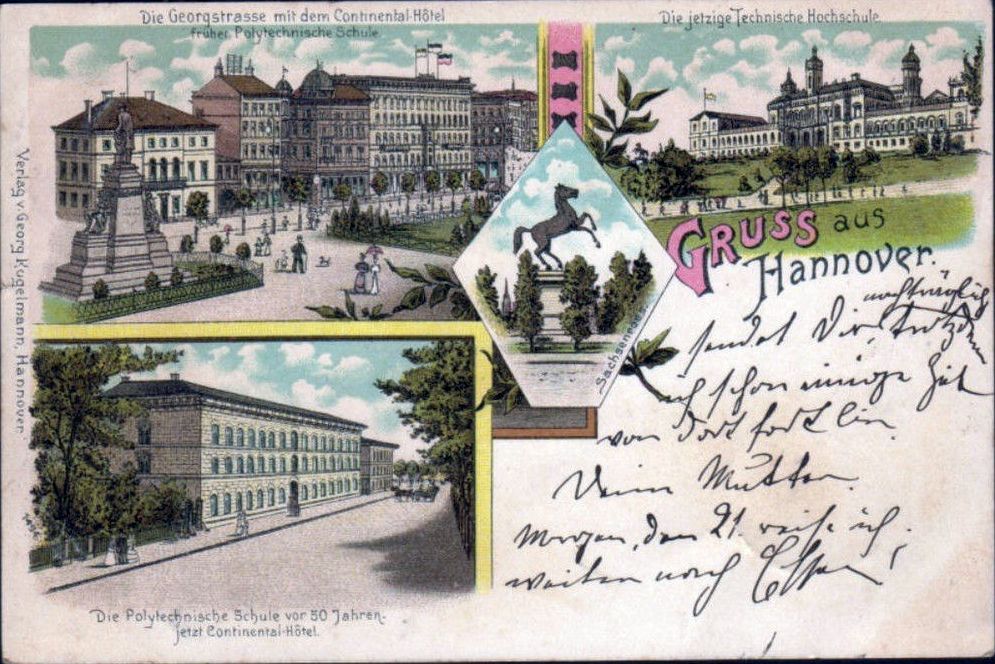 Die Georgstrasse mit dem Continental-Hôtel
früher Polytechnische Schule
Die jetzige Technische Hochschule
Verlag v Georg Kugelmann, Hannover.
Gruss aus
Hannover.
Sachsenross
nachträglich
sendet Dir, trotzdem
ich schon einige Zeit
von dort fort bin
Deine Mutter.
Morgen, den 21. reise ich
weiter nach Essen!
Die Polytechnische Schule vor 50 Jahren.
jetzt Continental-Hôtel.